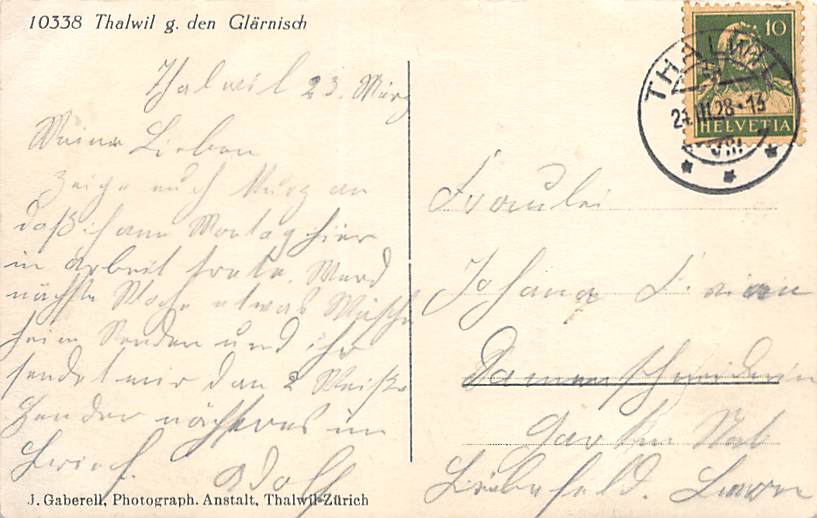 10338 Thalwil g. den Glärnisch
Thalwil 23. März
Meine Lieben
Zeige euch kurz an
daß ich am Montag hier
in arbeit trete. Werd
nächste Woche etwas Wäsche
heim Senden und ihr
sendet mir dan 2 Weiße
Hemder nächeres im
Brief. Adolf
J. Gaberell, Photograph. Anstalt, Thalwil-Zürich
10
HELVETIA
THALWIL
III.28-13
Fräulei
Johana
Damenschneiderin
Garten
Liebefeld.